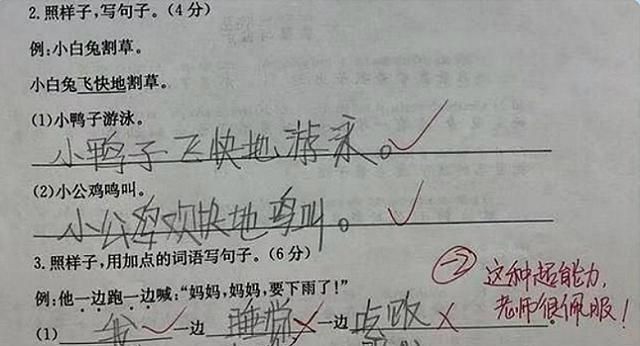 2.照样子,写句子。(4分)
例:小白兔割草。
小白兔飞快地割草。
(1)小鸭子游泳。
小鸭子飞快地游泳。
(2)小公鸡鸣叫。
小公鸡欢快地鸣叫。
3.照样子,用加点的词语写句子。(6分)
例:他一边跑一边喊:“妈妈,妈妈,要下雨了!”
(1) 我 一边 睡觉 一边
-2 这种超能力,
老师很佩服!